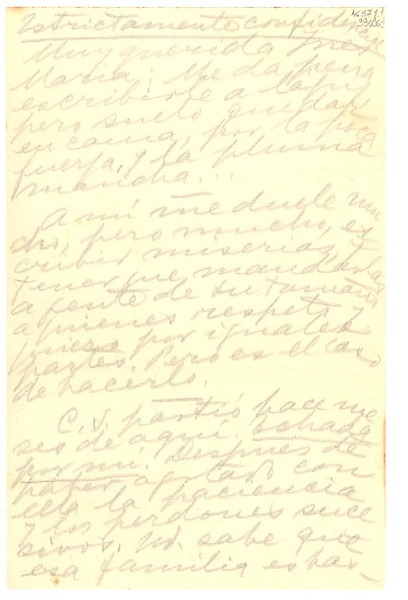 Estrictamente confiden
cial
Muy querida Inés
María: Me da pena
escribirte a lápiz
pero suelo quedar
en cama, por la poca
fuerza, y la pluma
mancha...
A mí me duele mu
cho, pero mucho, es
cribir miserias, y
tener que mandarlas
a gente de su tamaño
a quienes respeto y
quiero por iguales
partes. Pero es el caso
de hacerlo.
C. S. partió hace me
ses de aquí. Echada
por mí. Después de
haber agotado con
ella la paciencia
y los perdones suce
sivos. Ud. sabe que
esa familia es bas-